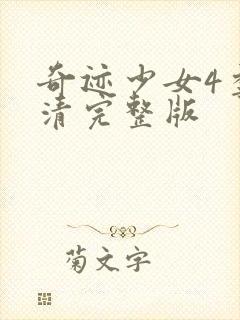 奇迹少女4
清完整版
菊文字